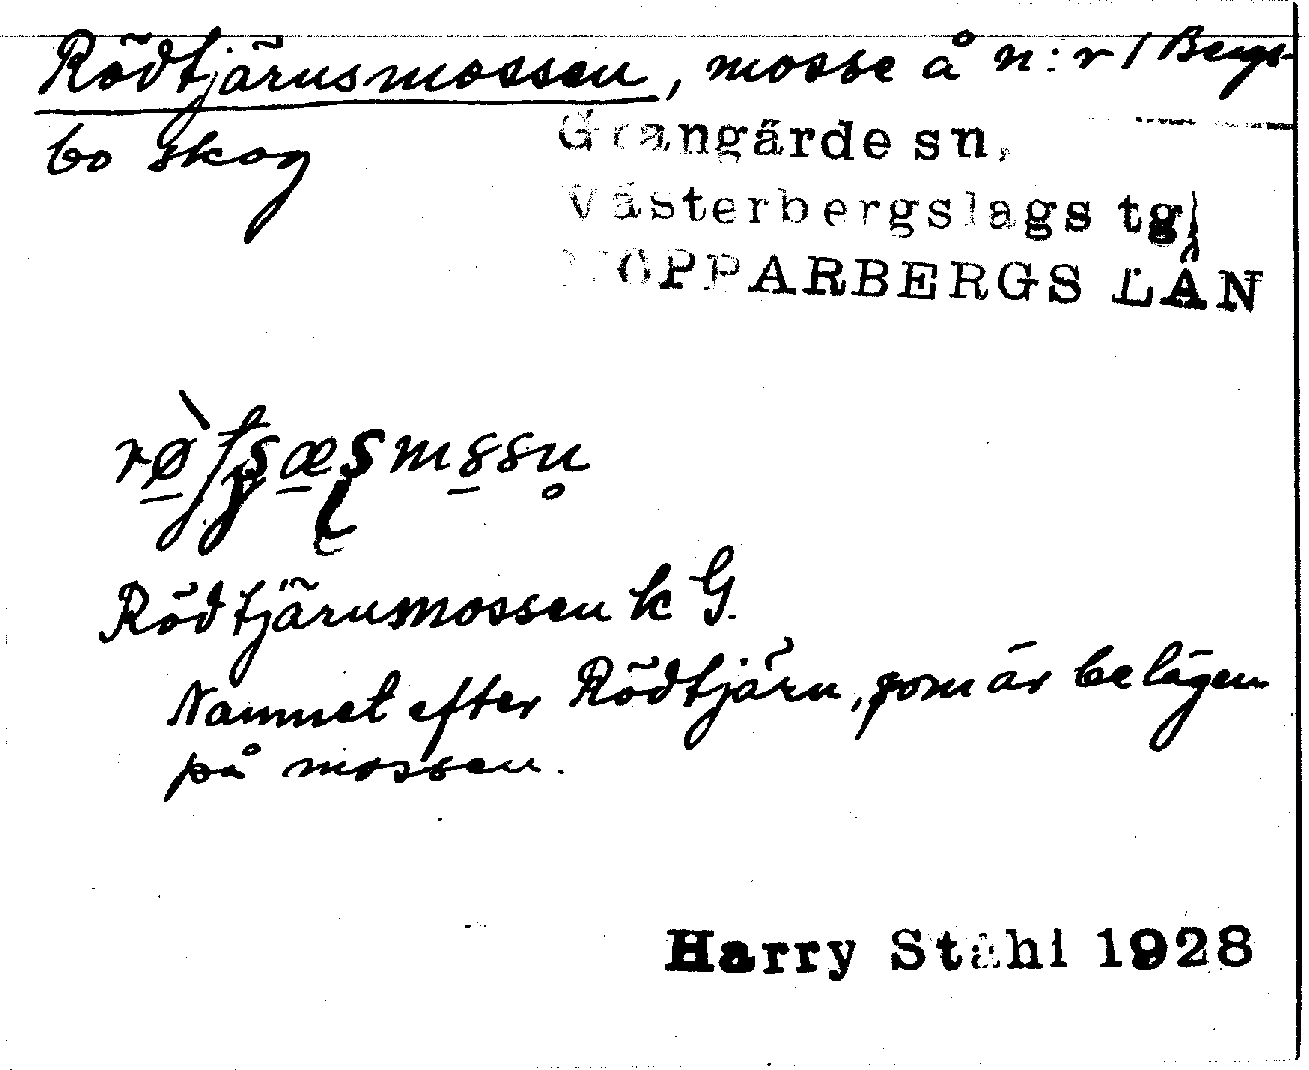 Rödtjärnsmossen, mosse å n:r 1 Bergs-
bo skog
Grangärde sn,
Västerbergslags tg,
KOPPARBERGS LÄN
Rödtjärnmossen k G.
Namnet efter Rödtjärn, som är belägen
på mossen.
Harry Ståhl 1928